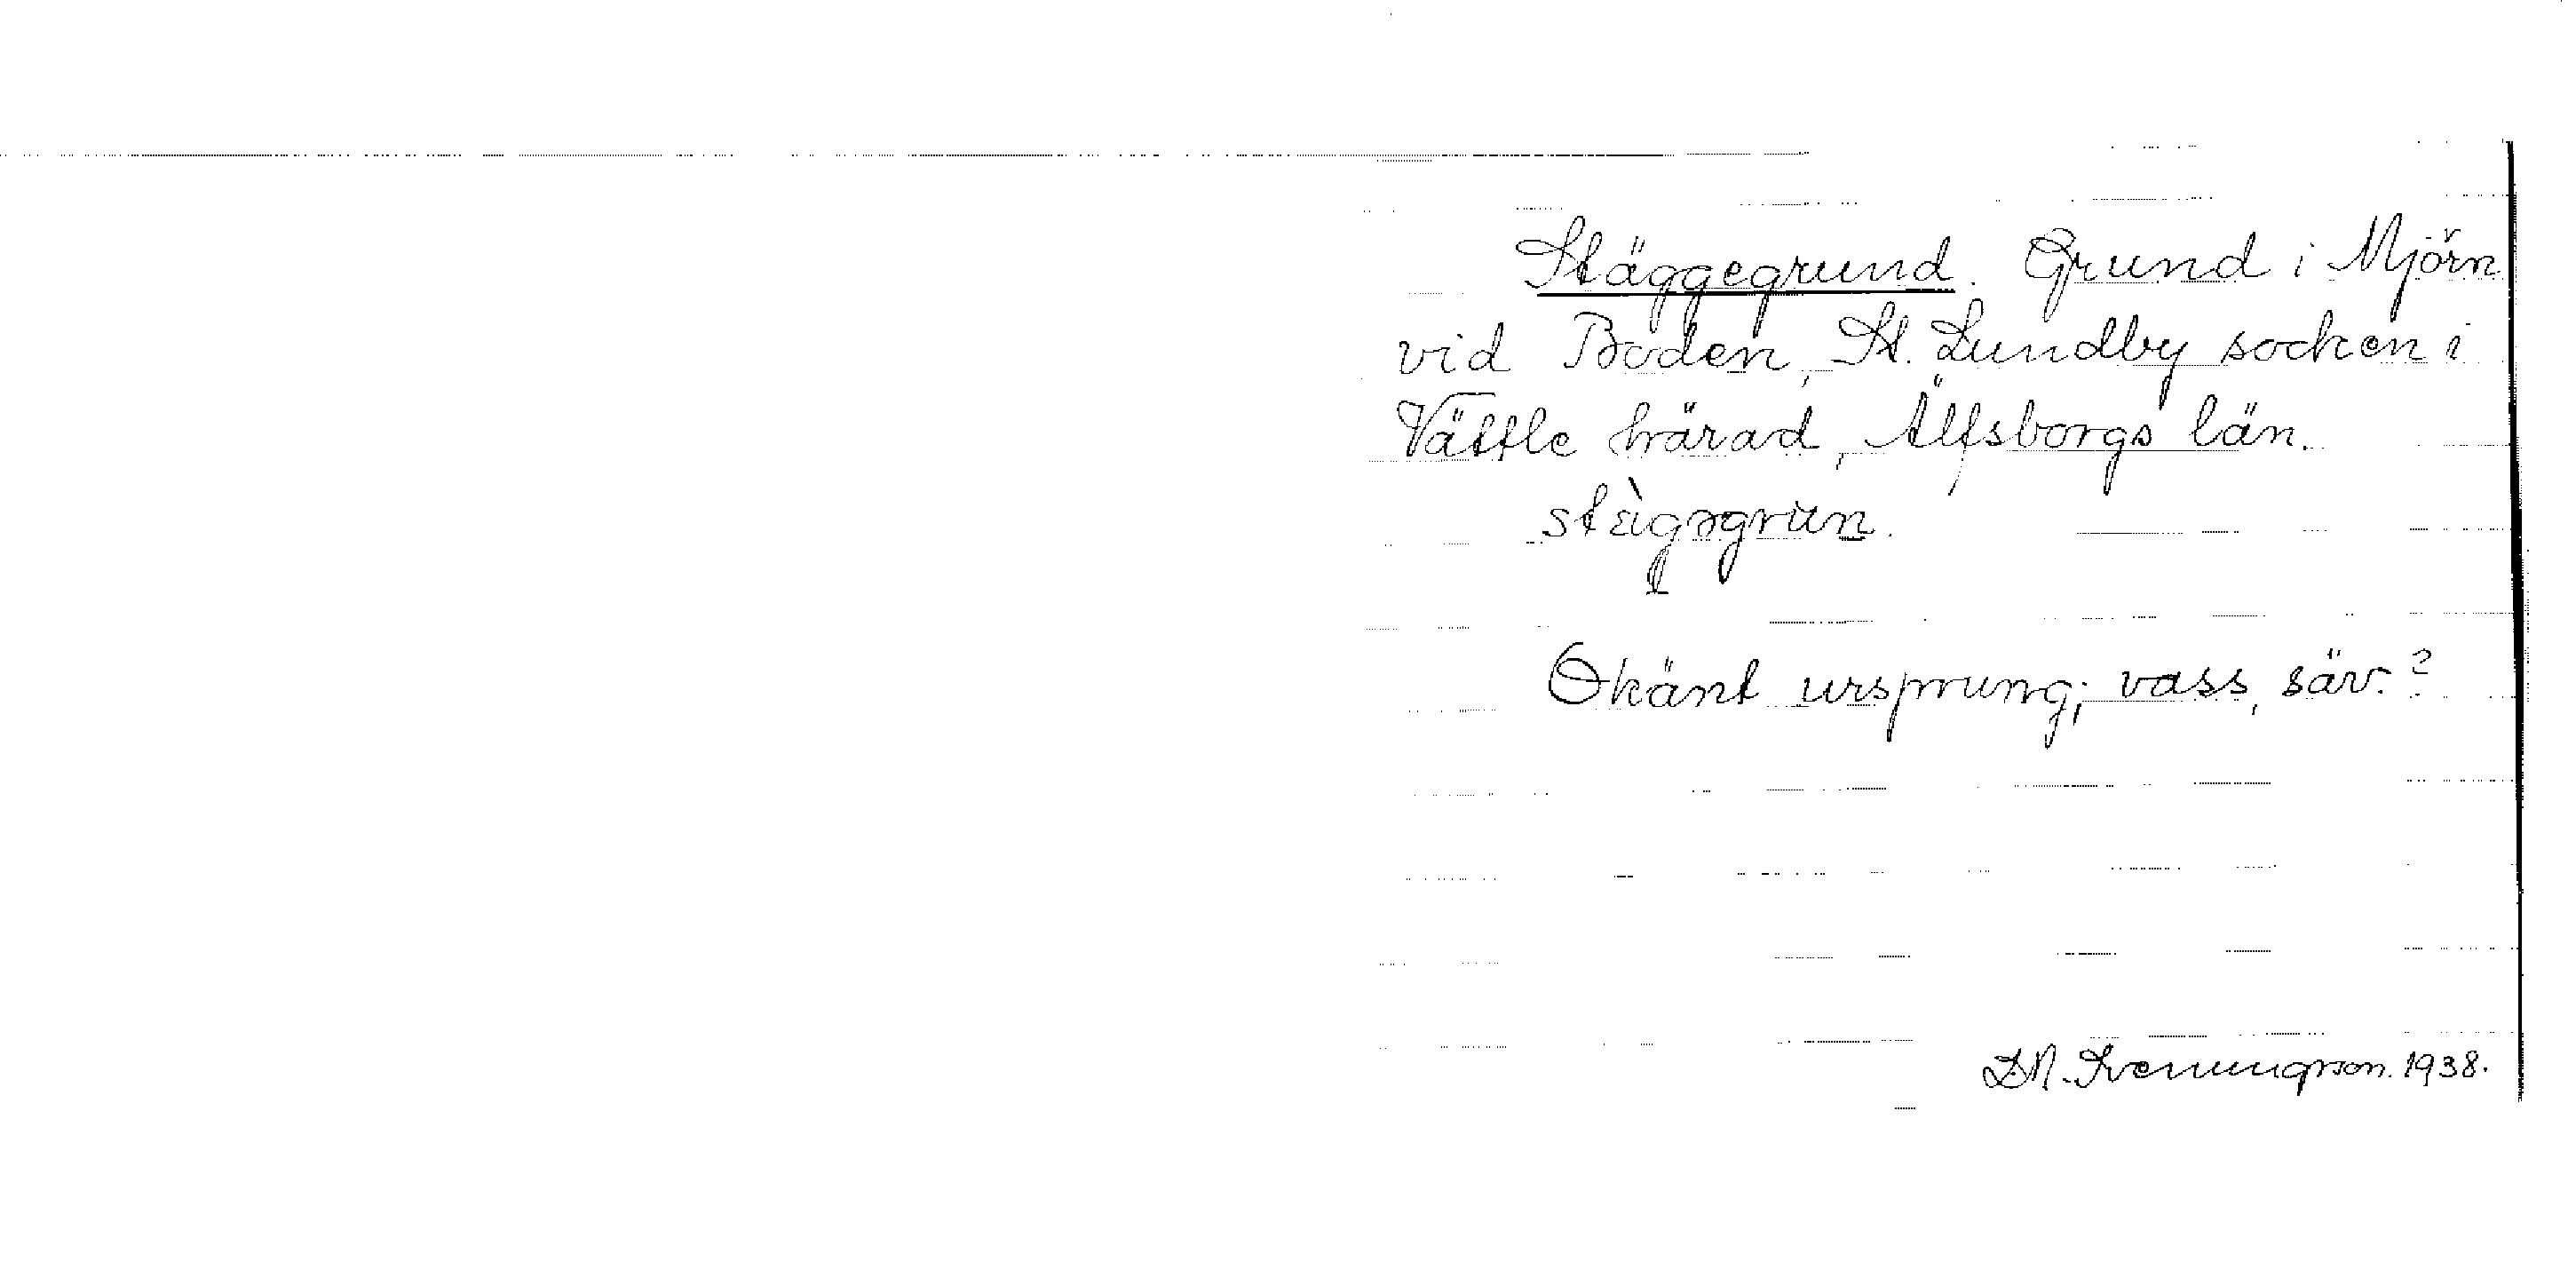 Stäggegrund. Grund i Mjörn
vid Boden, St. Lundby socken i
Vättle härad, Älfsborgs län.
stɛ̀gəgrun.
Okänt ursprung; vass, säv.?
D.N. Svenungsson. 1938.